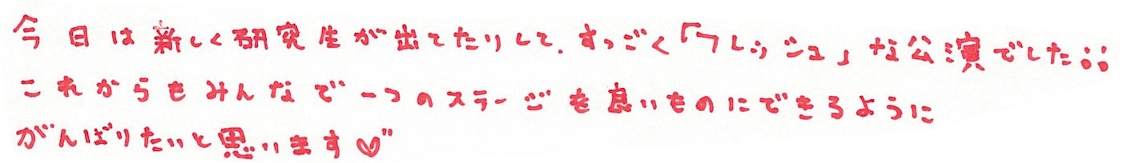 今日は新しく研究生が出てたりして、すっごく「フレッシュ」な公演でした。。
これからもみんなで一つのステージを良いものにできるように
がんばりたいと思います♡"